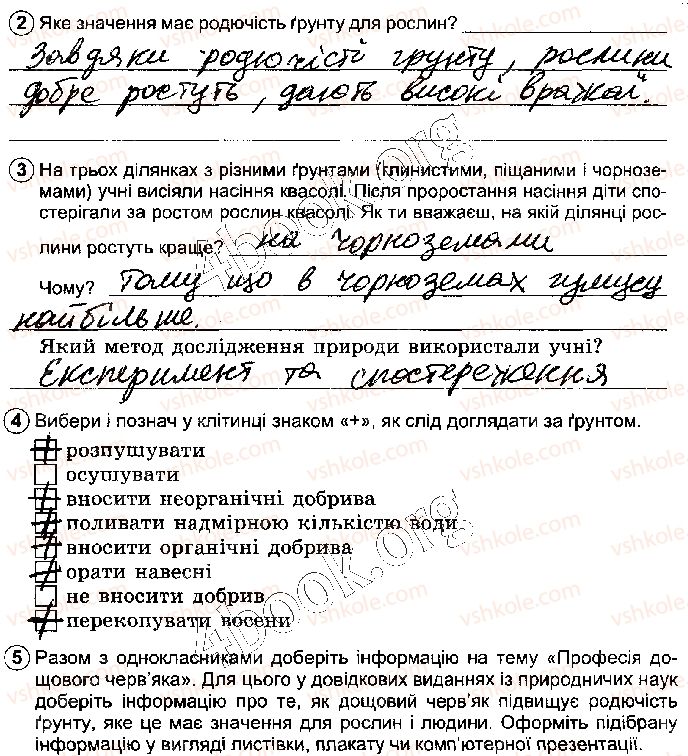 2 Яке значення має родючість ґрунту для рослин?
Завдяки родючісті грунту, рослини
добре ростуть, дають високі вражаї.
3 На трьох ділянках з різними ґрунтами (глинистими, піщаними і чорнозе-
мами) учні висіяли насіння квасолі. Після проростання насіння діти спо-
стерігали за ростом рослин квасолі. Як ти вважаєш, на якій ділянці рос-
лини ростуть краще? на чорноземами
Чому? Тому що в чорноземах гумусу
найбільше.
Який метод дослідження природи використали учні?
Експеримент та спостереження
4 Вибери і познач у клітинці знаком «+», як слід доглядати за ґрунтом.
+ розпушувати
осушувати
+ вносити неорганічні добрива
+ поливати надмірною кількістю води
+ вносити органічні добрива
+ орати навесні
не вносити добрив
+ перекопувати восени
5 Разом з однокласниками доберіть інформацію на тему «Професія до-
щового черв'яка». Для цього у довідкових виданнях із природничих наук
доберіть інформацію про те, як дощовий черв'як підвищує родючість
ґрунту, яке це має значення для рослин і людини. Оформіть підібрану
інформацію у вигляді листівки, плакату чи комп'ютерної презентації.
4book.org
vshkole.com